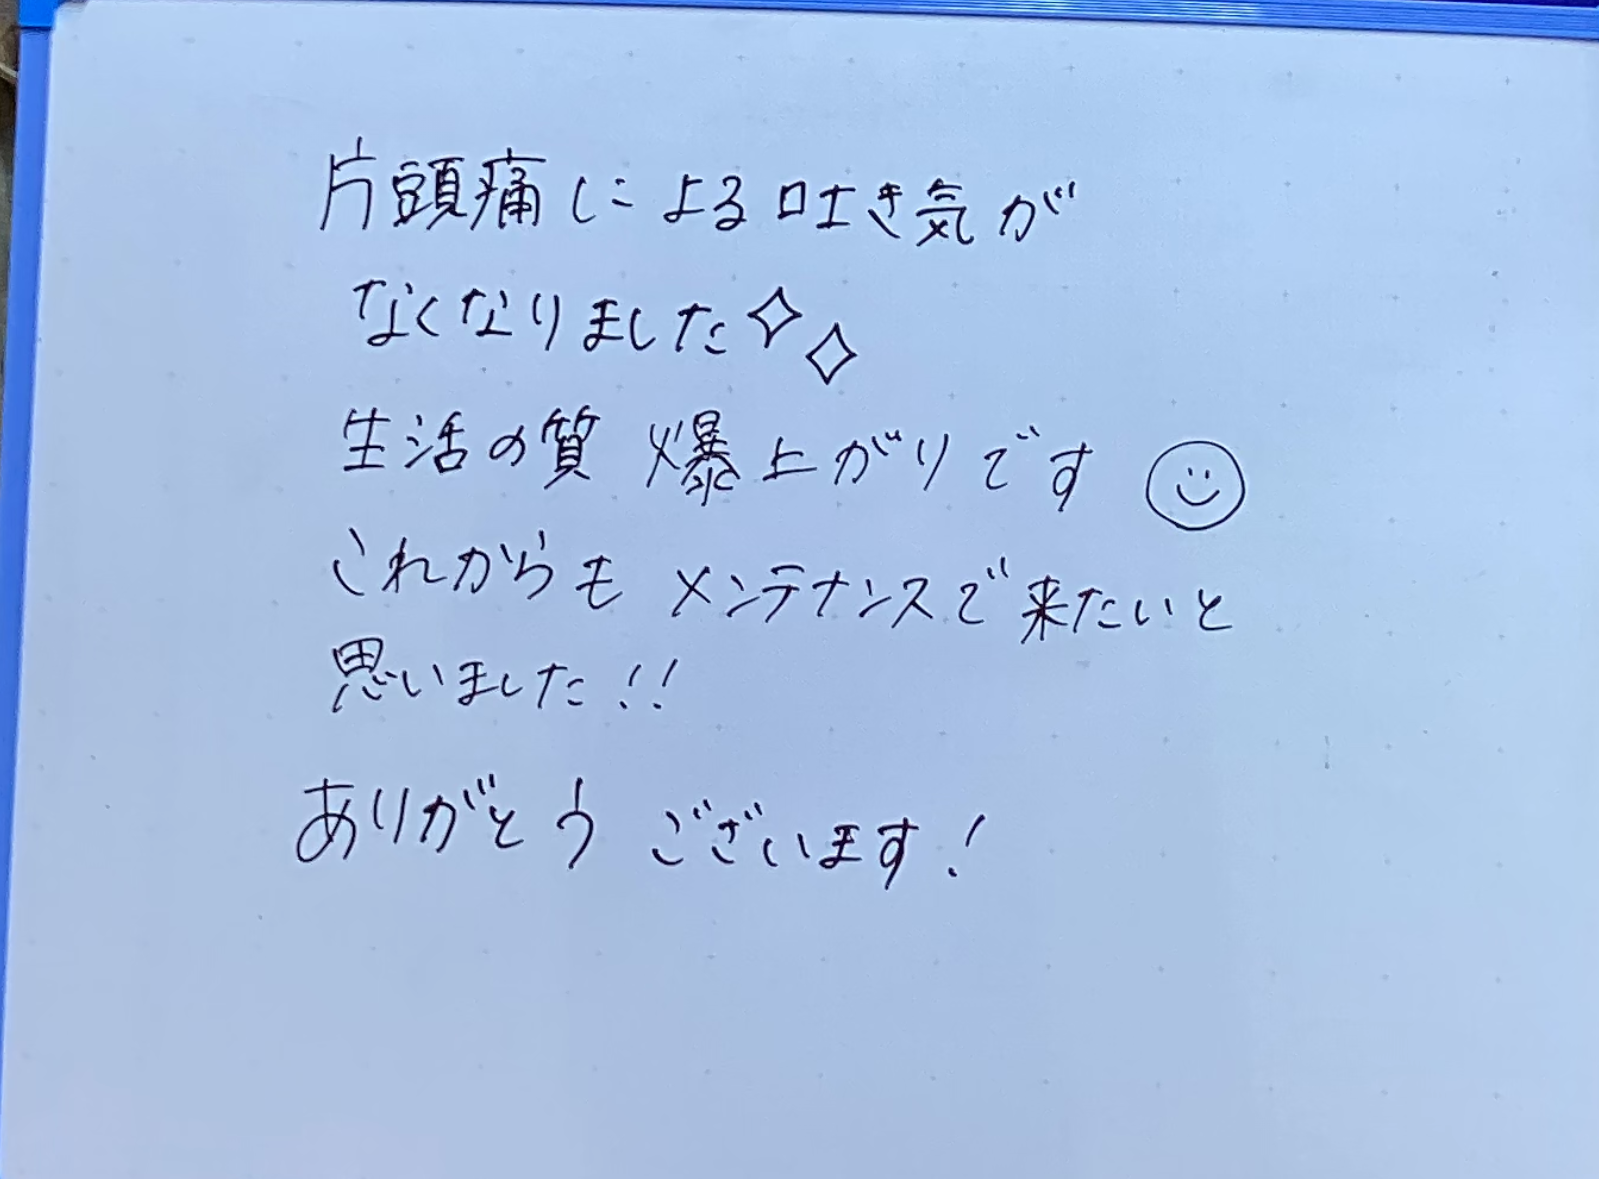 片頭痛による吐き気が
なくなりました✧✧
生活の質 爆上がりです ☺
これからも メンテナンスで来たいと
思いました!!
ありがとう ございます!